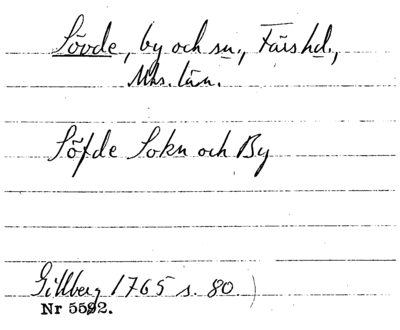 Sövde, by och sn., Färs hd.,
Mhs. län.
Söfde Sokn och By
Gillberg 1765 s. 80.
Nr 5592.